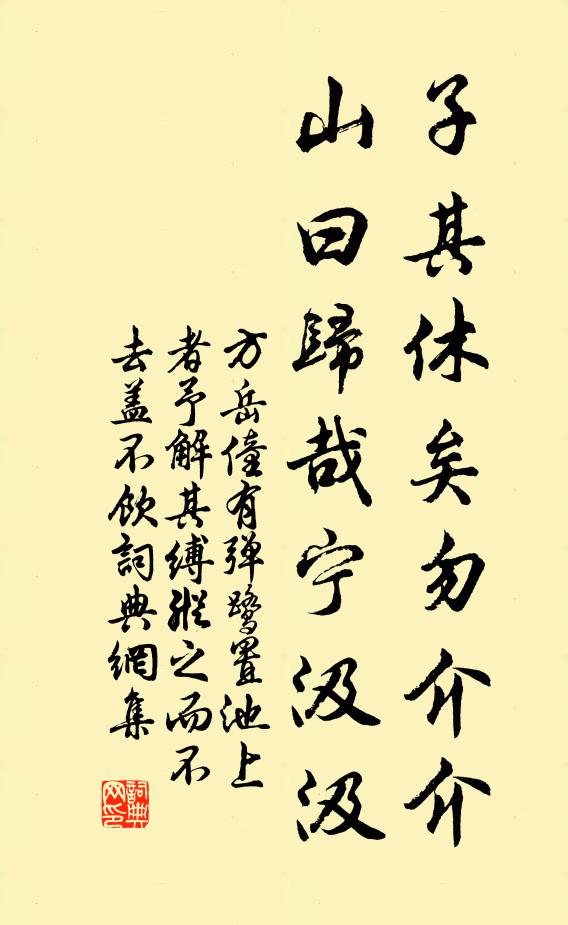 子其休矣勿介介
山曰歸哉宁汲汲
方岳僮有弹鹭置池上
者予解其缚縱之而不
去盖不飲詞典網集
詞典網印